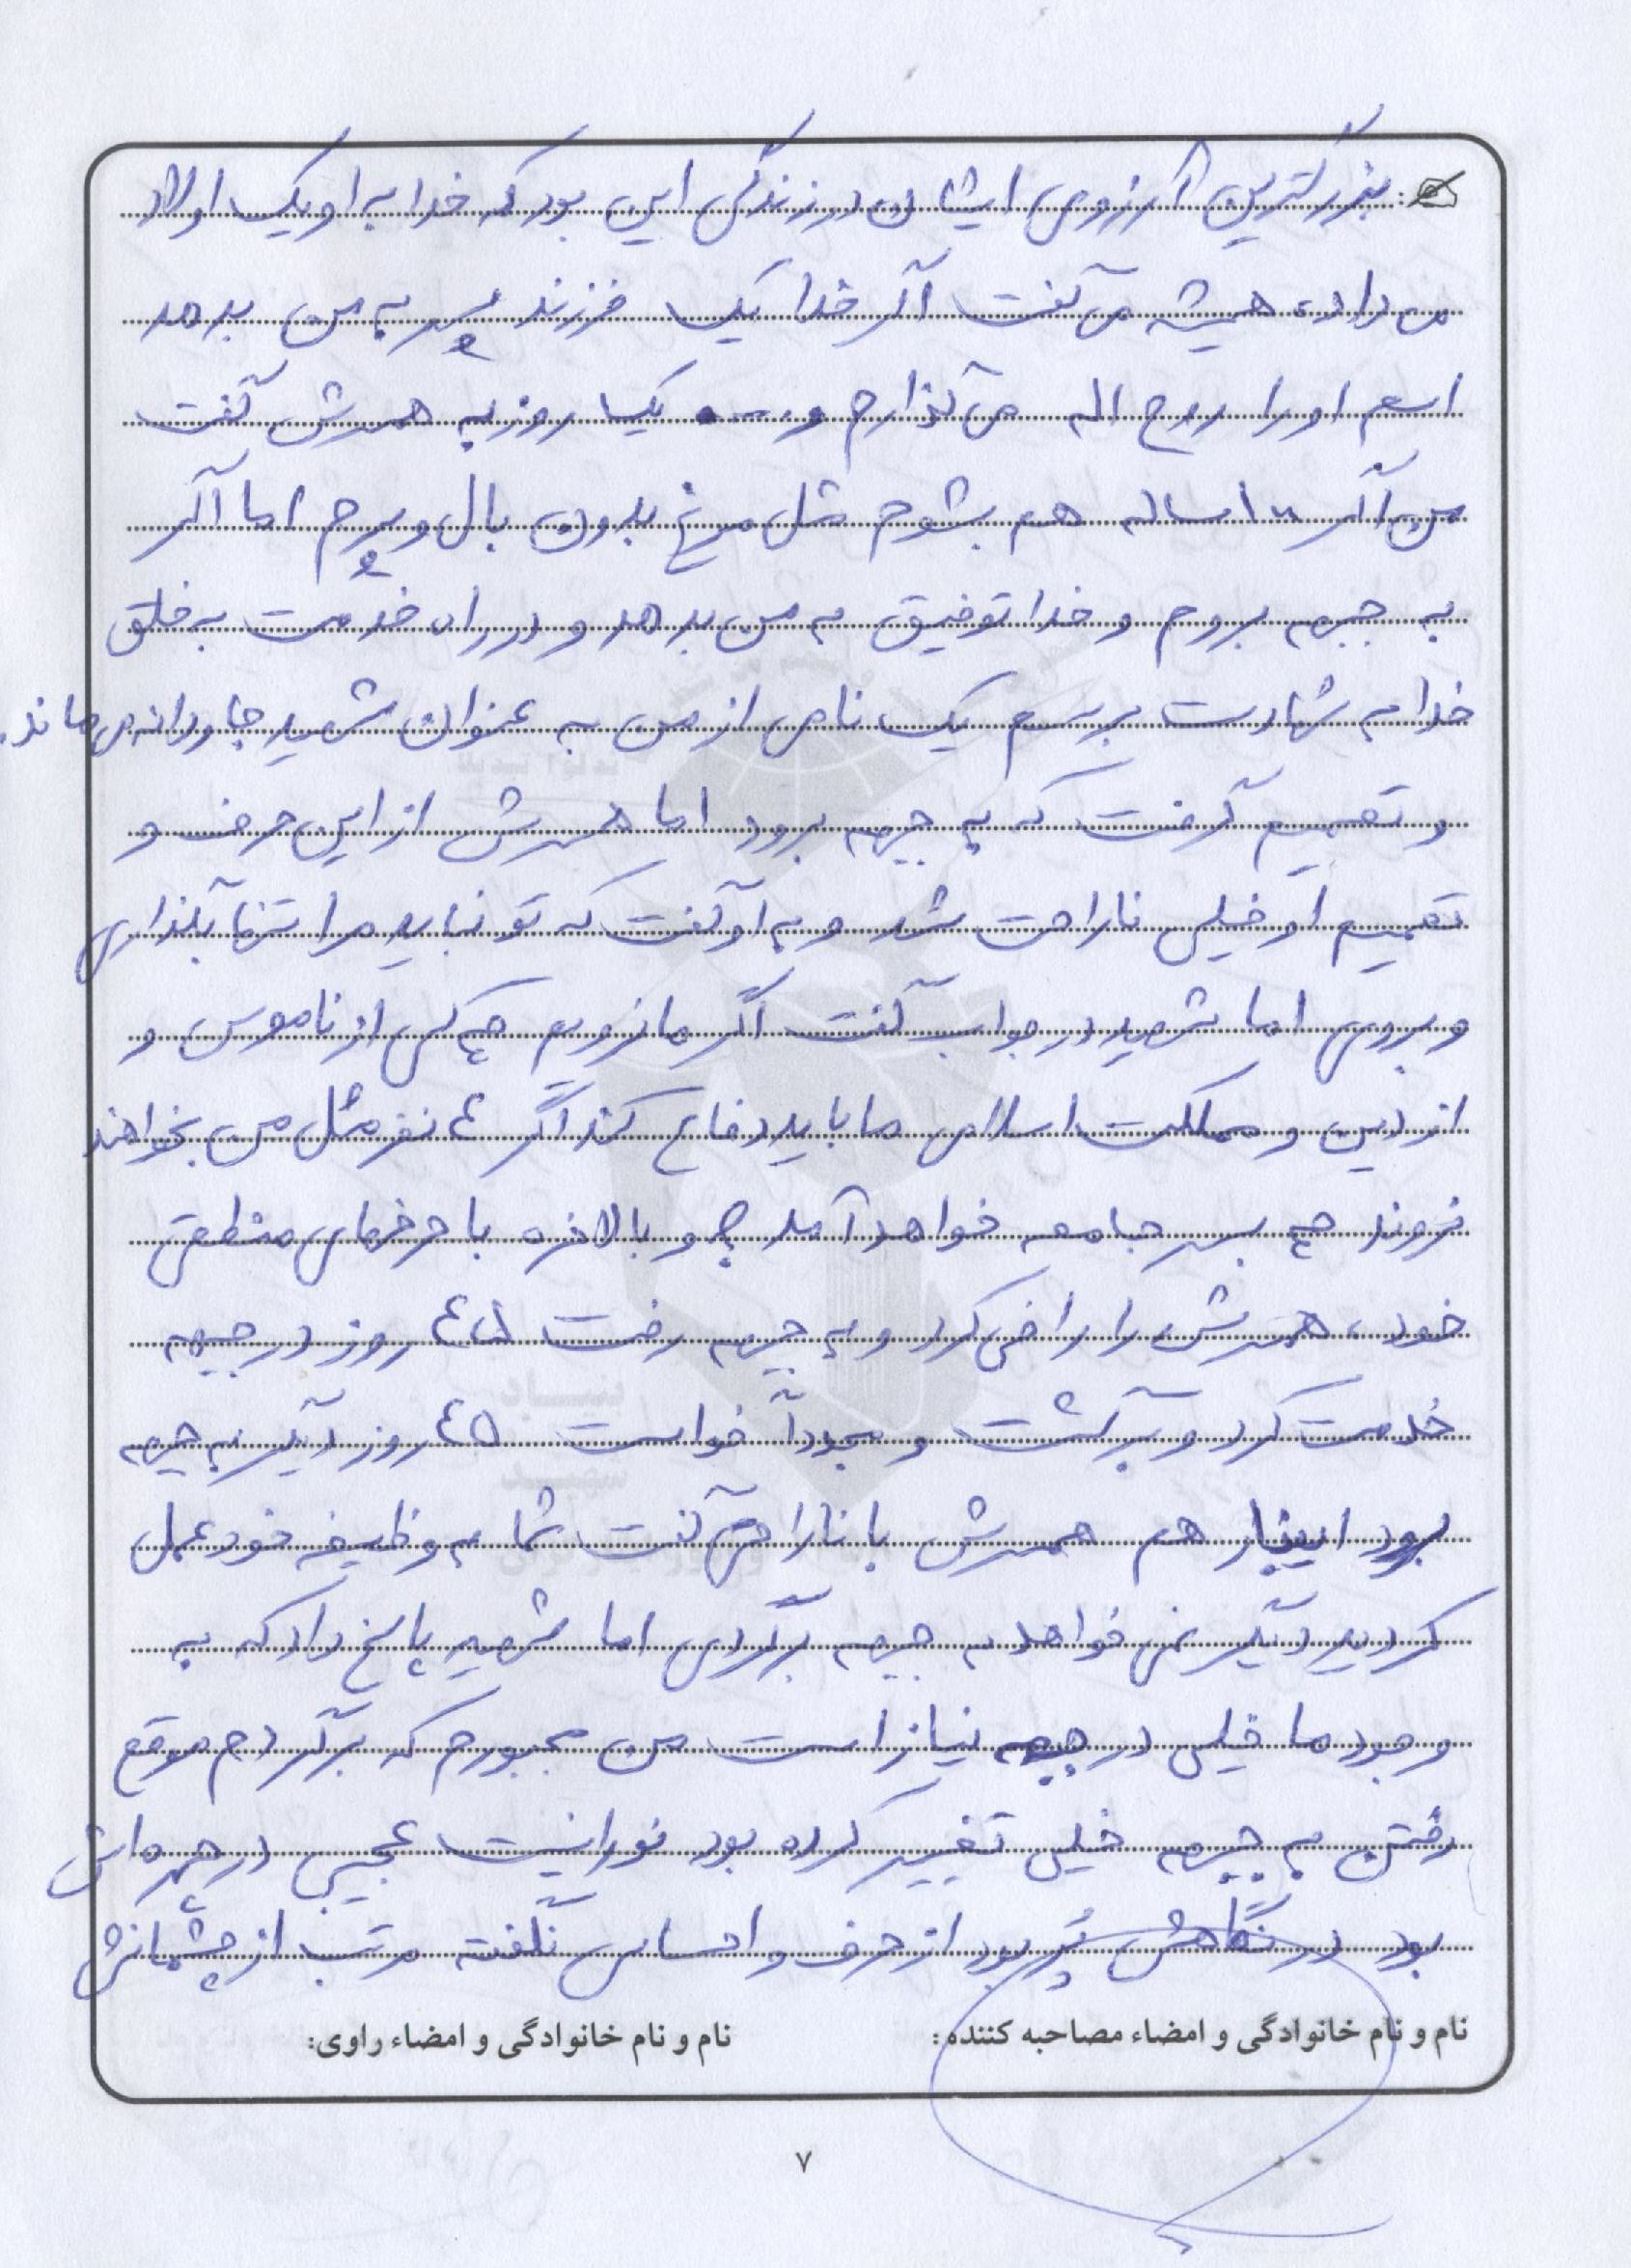 بزرگترین آرزوی ایشان در زندگی این بود که خدا به او یک اولاد
می داد، همیشه می گفت اگر خدا یک فرزند پسر به من بدهد
اسم او را روح اله می گذارم و ... یک روز به همسرش گفت
من اگر ۱۰۰ ساله هم بشوم مثل مرغ بدون بال و پرم اما اگر
به جبهه بروم و خدا توفیق به من بدهد و در راه خدمت به خلق
خدا به شهادت برسم یک نامی از من به عنوان شهید جاودانه می ماند.
و تصمیم گرفت که به جبهه برود اما همسرش از این حرف و
تصمیم او خیلی ناراحت شد و به او گفت که تو نباید مرا تنها بگذاری
و بروی اما شهید در جواب گفت اگر ما نرویم چه کسی از ناموس و
از دین و مملکت اسلامی ما باید دفاع کند اگر ۴ نفر مثل من بخواهند
نروند چه بسر جامعه خواهد آمد؟ و بالاخره با حرفهای منطقی
خود، همسرش را راضی کرد و به جبهه رفت ۴۵ روز در جبهه
خدمت کرد و برگشت و مجدداً خواست ۴۵ روز دیگر به جبهه
برود اینبار هم همسرش با ناراحتی گفت شما به وظیفه خود عمل
کردید دیگر نمی خواهد به جبهه برگردی اما شهید پاسخ داد که به
وجود ما خیلی در جبهه نیاز است من مجبورم که برگردم موقع
رفتن به جبهه خیلی تغییر کرده بود نورانیت عجیبی در چهره اش
بود در نگاهش پر بود از حرف و احساس نگفته مرتب از چشمانش
نام و نام خانوادگی و امضاء مصاحبه کننده: نام و نام خانوادگی و امضاء راوی:
۷